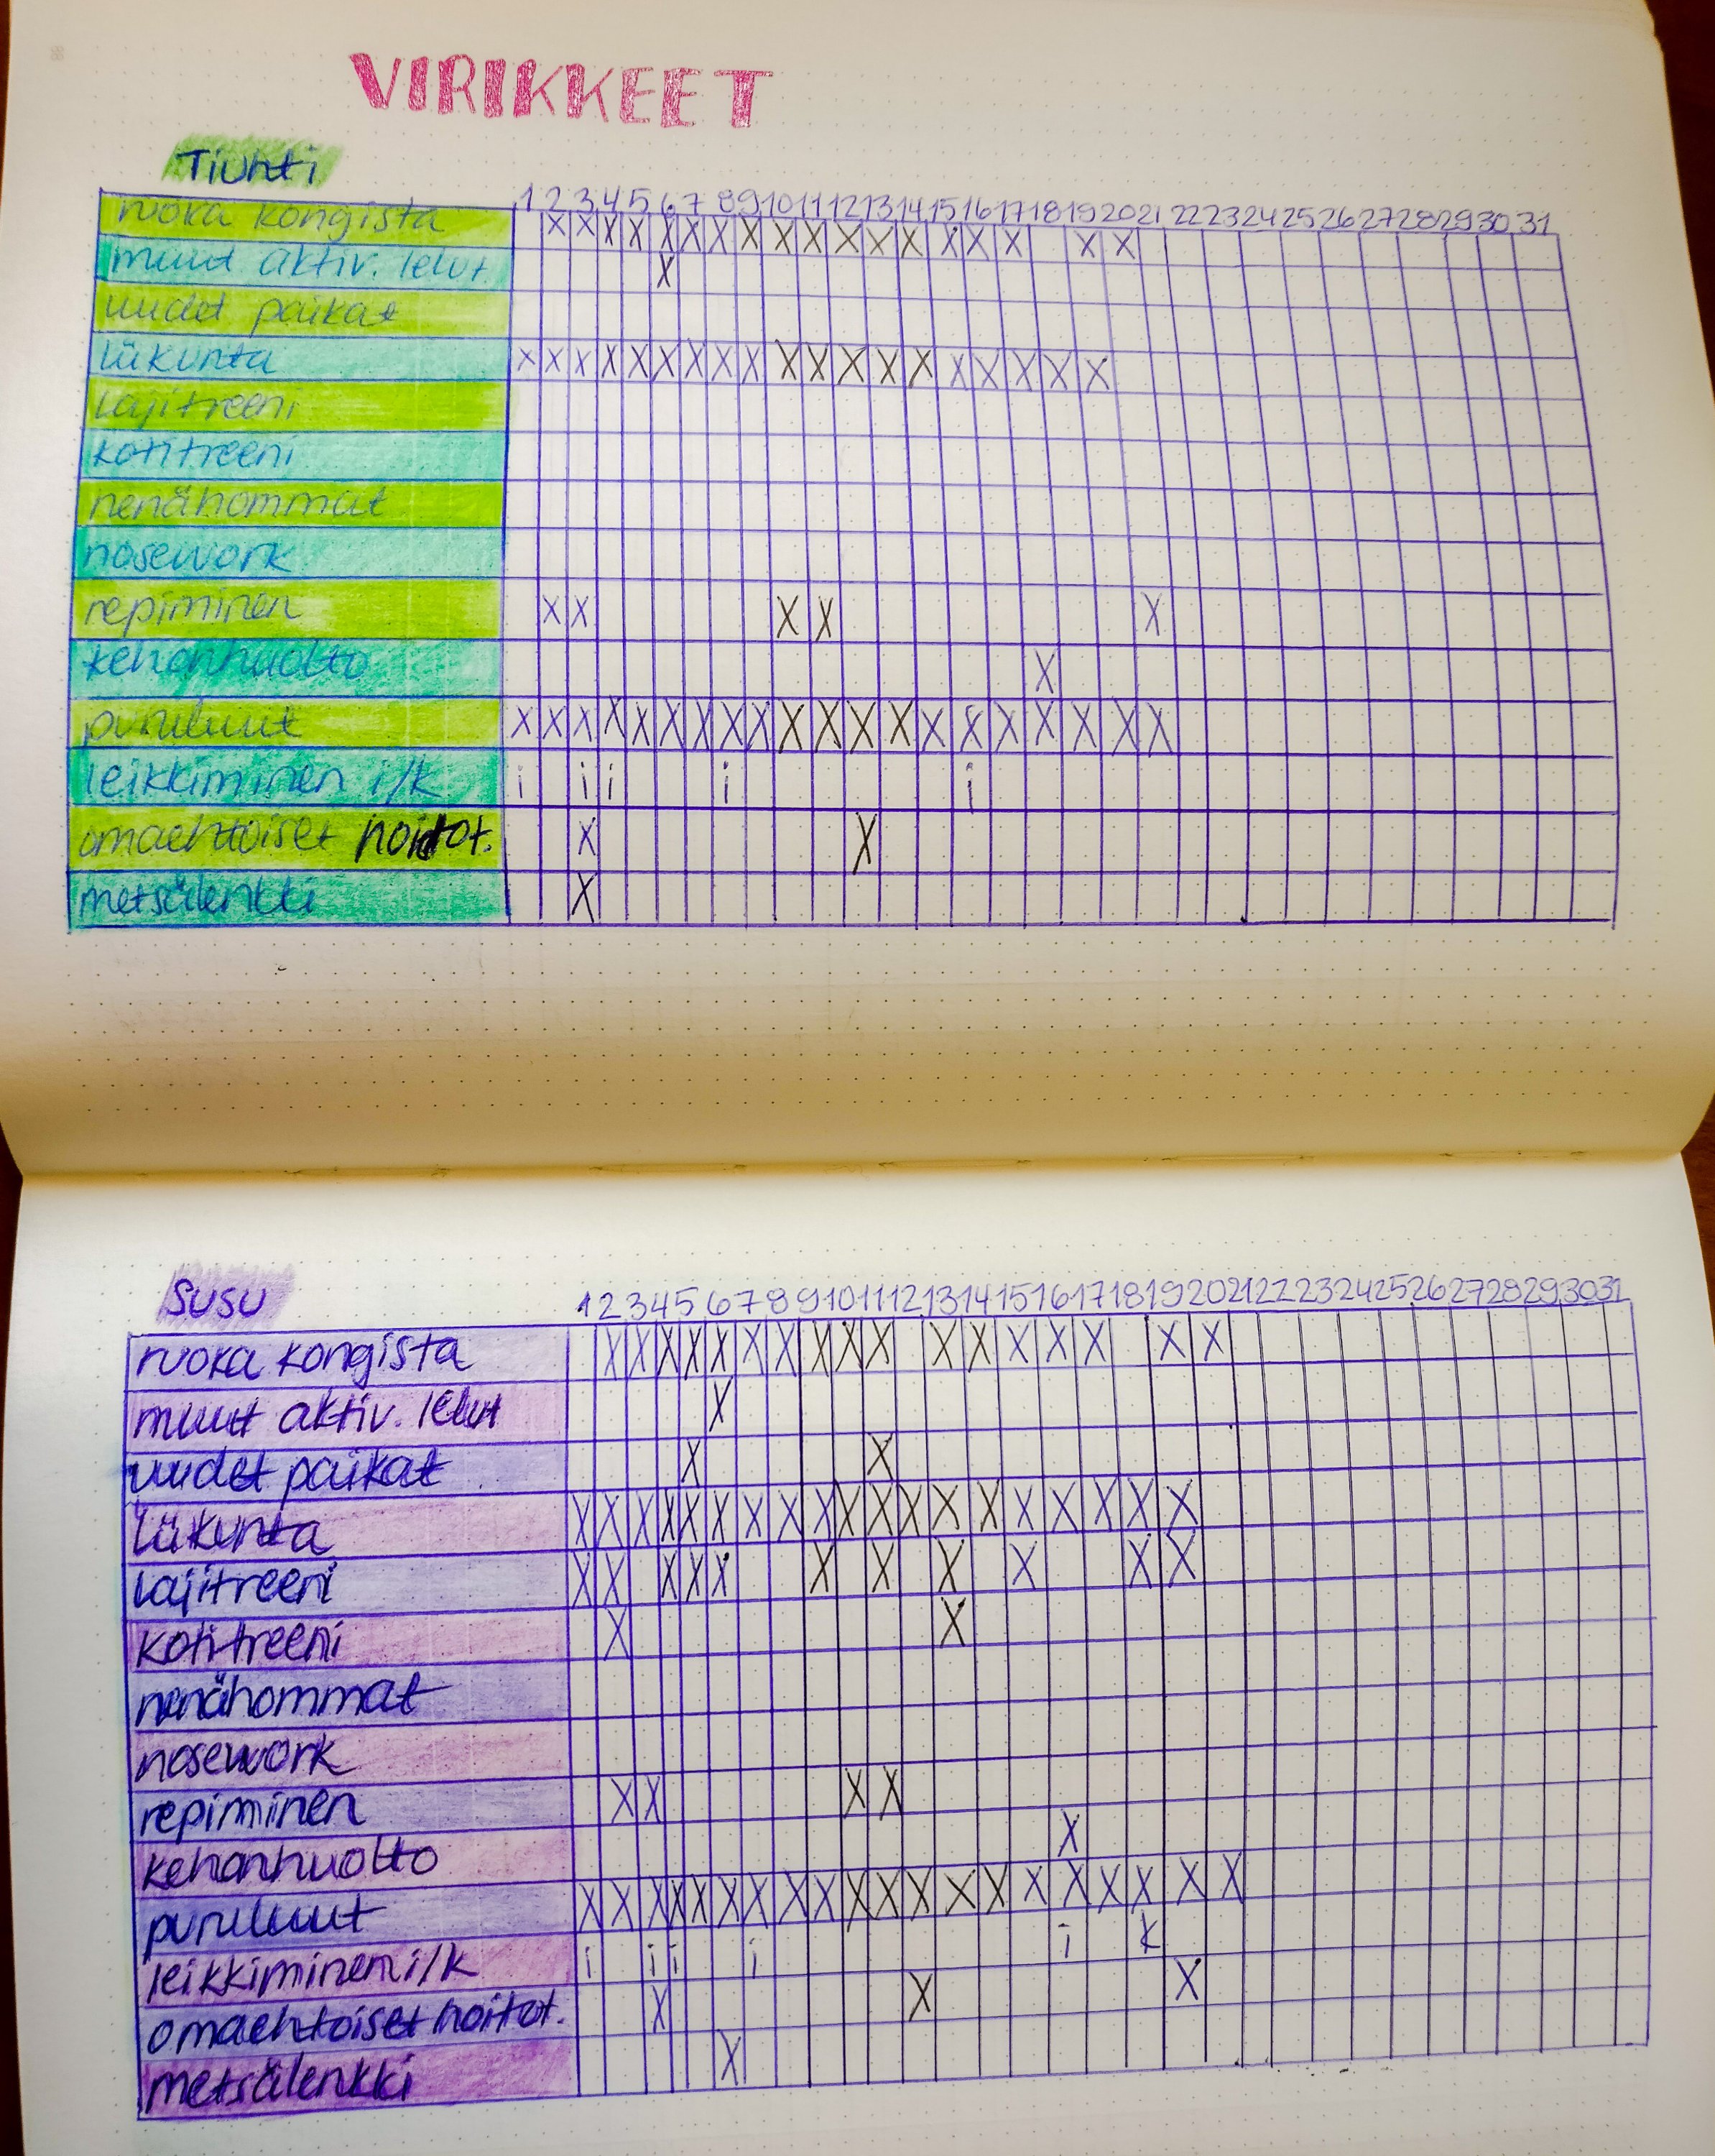 VIRIKKEET
Tiuhti
1 2 3 4 5 6 7 8 9 10 11 12 13 14 15 16 17 18 19 20 21 22 23 24 25 26 27 28 29 30 31
ruoka kongista X X X X X X X X X X X X X X X X X X
muut aktiv. lelut X
uudet paikat
liikunta X X X X X X X X X X X X X X X X X X X
lajitreeni
kotitreeni
nenähommat
nosework
repiminen X X X X X
kehonhuolto X
puruluut X X X X X X X X X X X X X X X X X X X X
leikkiminen i/k i i i i i
omaehtoiset hoitot. X X
metsälenkki X
SUSU
1 2 3 4 5 6 7 8 9 10 11 12 13 14 15 16 17 18 19 20 21 22 23 24 25 26 27 28 29 30 31
ruoka kongista X X X X X X X X X X X X X X X X X
muut aktiv. lelut X
uudet paikat X X
liikunta X X X X X X X X X X X X X X X X X X X
lajitreeni X X X X X X X X X X X
kotitreeni X X
nenähommat
nosework
repiminen X X X X
kehonhuolto X
puruluut X X X X X X X X X X X X X X X X X X X X
leikkiminen i/k i i i i i k
omaehtoiset hoitot. X X X
metsälenkki X